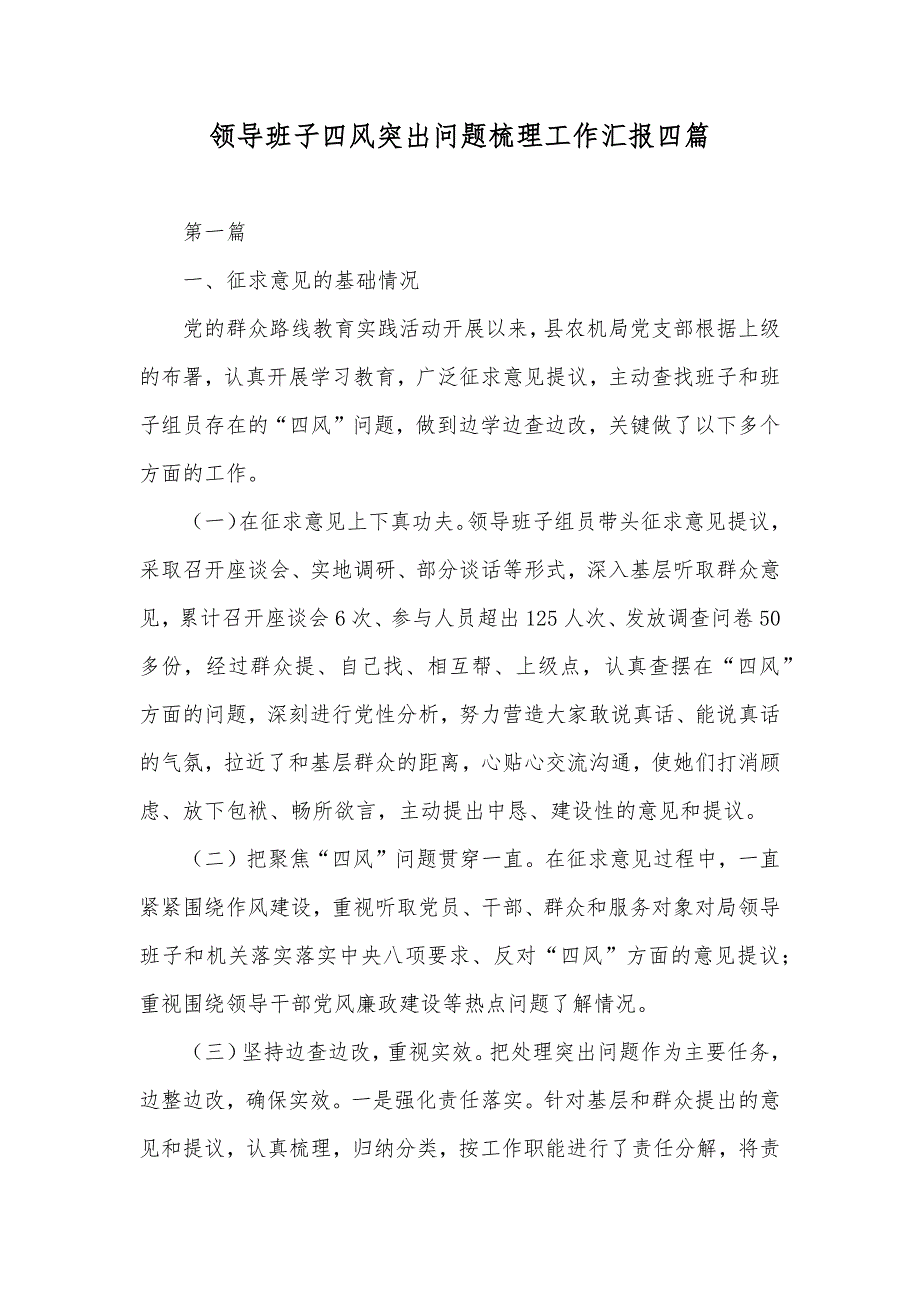 领导班子四风突出问题梳理工作汇报四篇
第一篇
一、征求意见的基础情况
党的群众路线教育实践活动开展以来，县农机局党支部根据上级
的布署，认真开展学习教育，广泛征求意见提议，主动查找班子和班
子组员存在的“四风”问题，做到边学边查边改，关键做了以下多个
方面的工作。
（一）在征求意见上下真功夫。领导班子组员带头征求意见提议，
采取召开座谈会、实地调研、部分谈话等形式，深入基层听取群众意
见，累计召开座谈会 6 次、参与人员超出 125 人次、发放调查问卷 50
多份，经过群众提、自己找、相互帮、上级点，认真查摆在“四风”
方面的问题，深刻进行党性分析，努力营造大家敢说真话、能说真话
的气氛，拉近了和基层群众的距离，心贴心交流沟通，使她们打消顾
虑、放下包袱、畅所欲言，主动提出中恳、建设性的意见和提议。
（二）把聚焦“四风”问题贯穿一直。在征求意见过程中，一直
紧紧围绕作风建设，重视听取党员、干部、群众和服务对象对局领导
班子和机关落实落实中央八项要求、反对“四风”方面的意见提议；
重视围绕领导干部党风廉政建设等热点问题了解情况。
（三）坚持边查边改，重视实效。把处理突出问题作为主要任务，
边整边改，确保实效。一是强化责任落实。针对基层和群众提出的意
见和提议，认真梳理，归纳分类，按工作职能进行了责任分解，将责